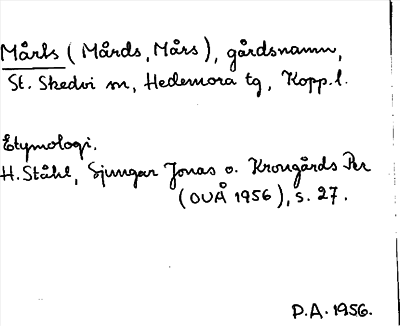 Mårts (Mårds, Mårs), gårdsnamn,
St. Skedvi sn, Hedemora tg, Kopp. l.
Etymologi.
H. Ståhl, Sjungar Jonas o. Krongårds Per
(OUÅ 1956), s. 27.
P.A. 1956.